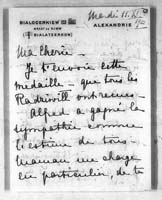 BIALOCERKIEW
ALEXANDRIE
Mardi 11.
Ma Chérie
Je t'envoie cette
médaille que tous les
Radziwill ont reçues.
Alfred a gagné la
sympathie comme
l'estime de tous.
Maman me charge
en particulier, de te